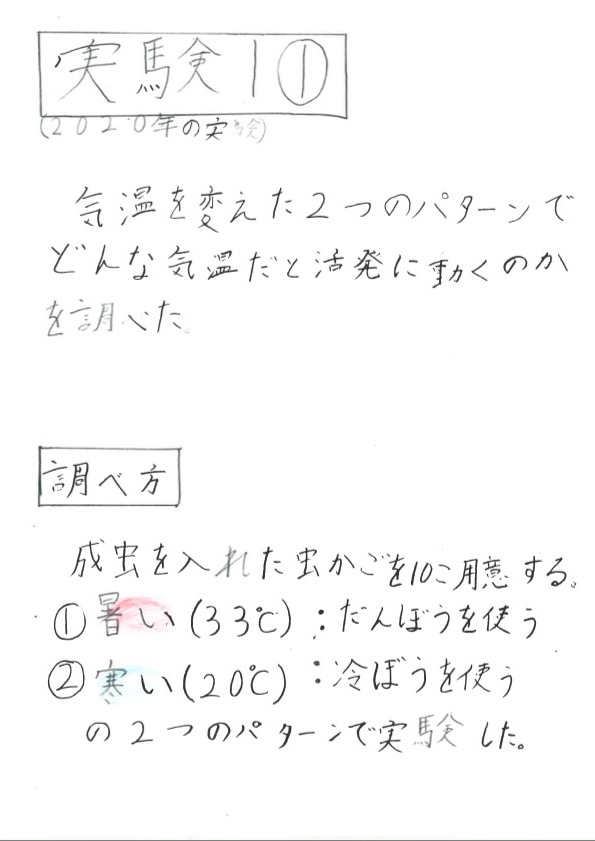 実験1①
(2020年の実験)
気温を変えた2つのパターンで
どんな気温だと活発に動くのか
を調べた。
調べ方
成虫を入れた虫かごを10こ用意する。
①暑い(33℃):だんぼうを使う
②寒い(20℃):冷ぼうを使う
の2つのパターンで実験した。